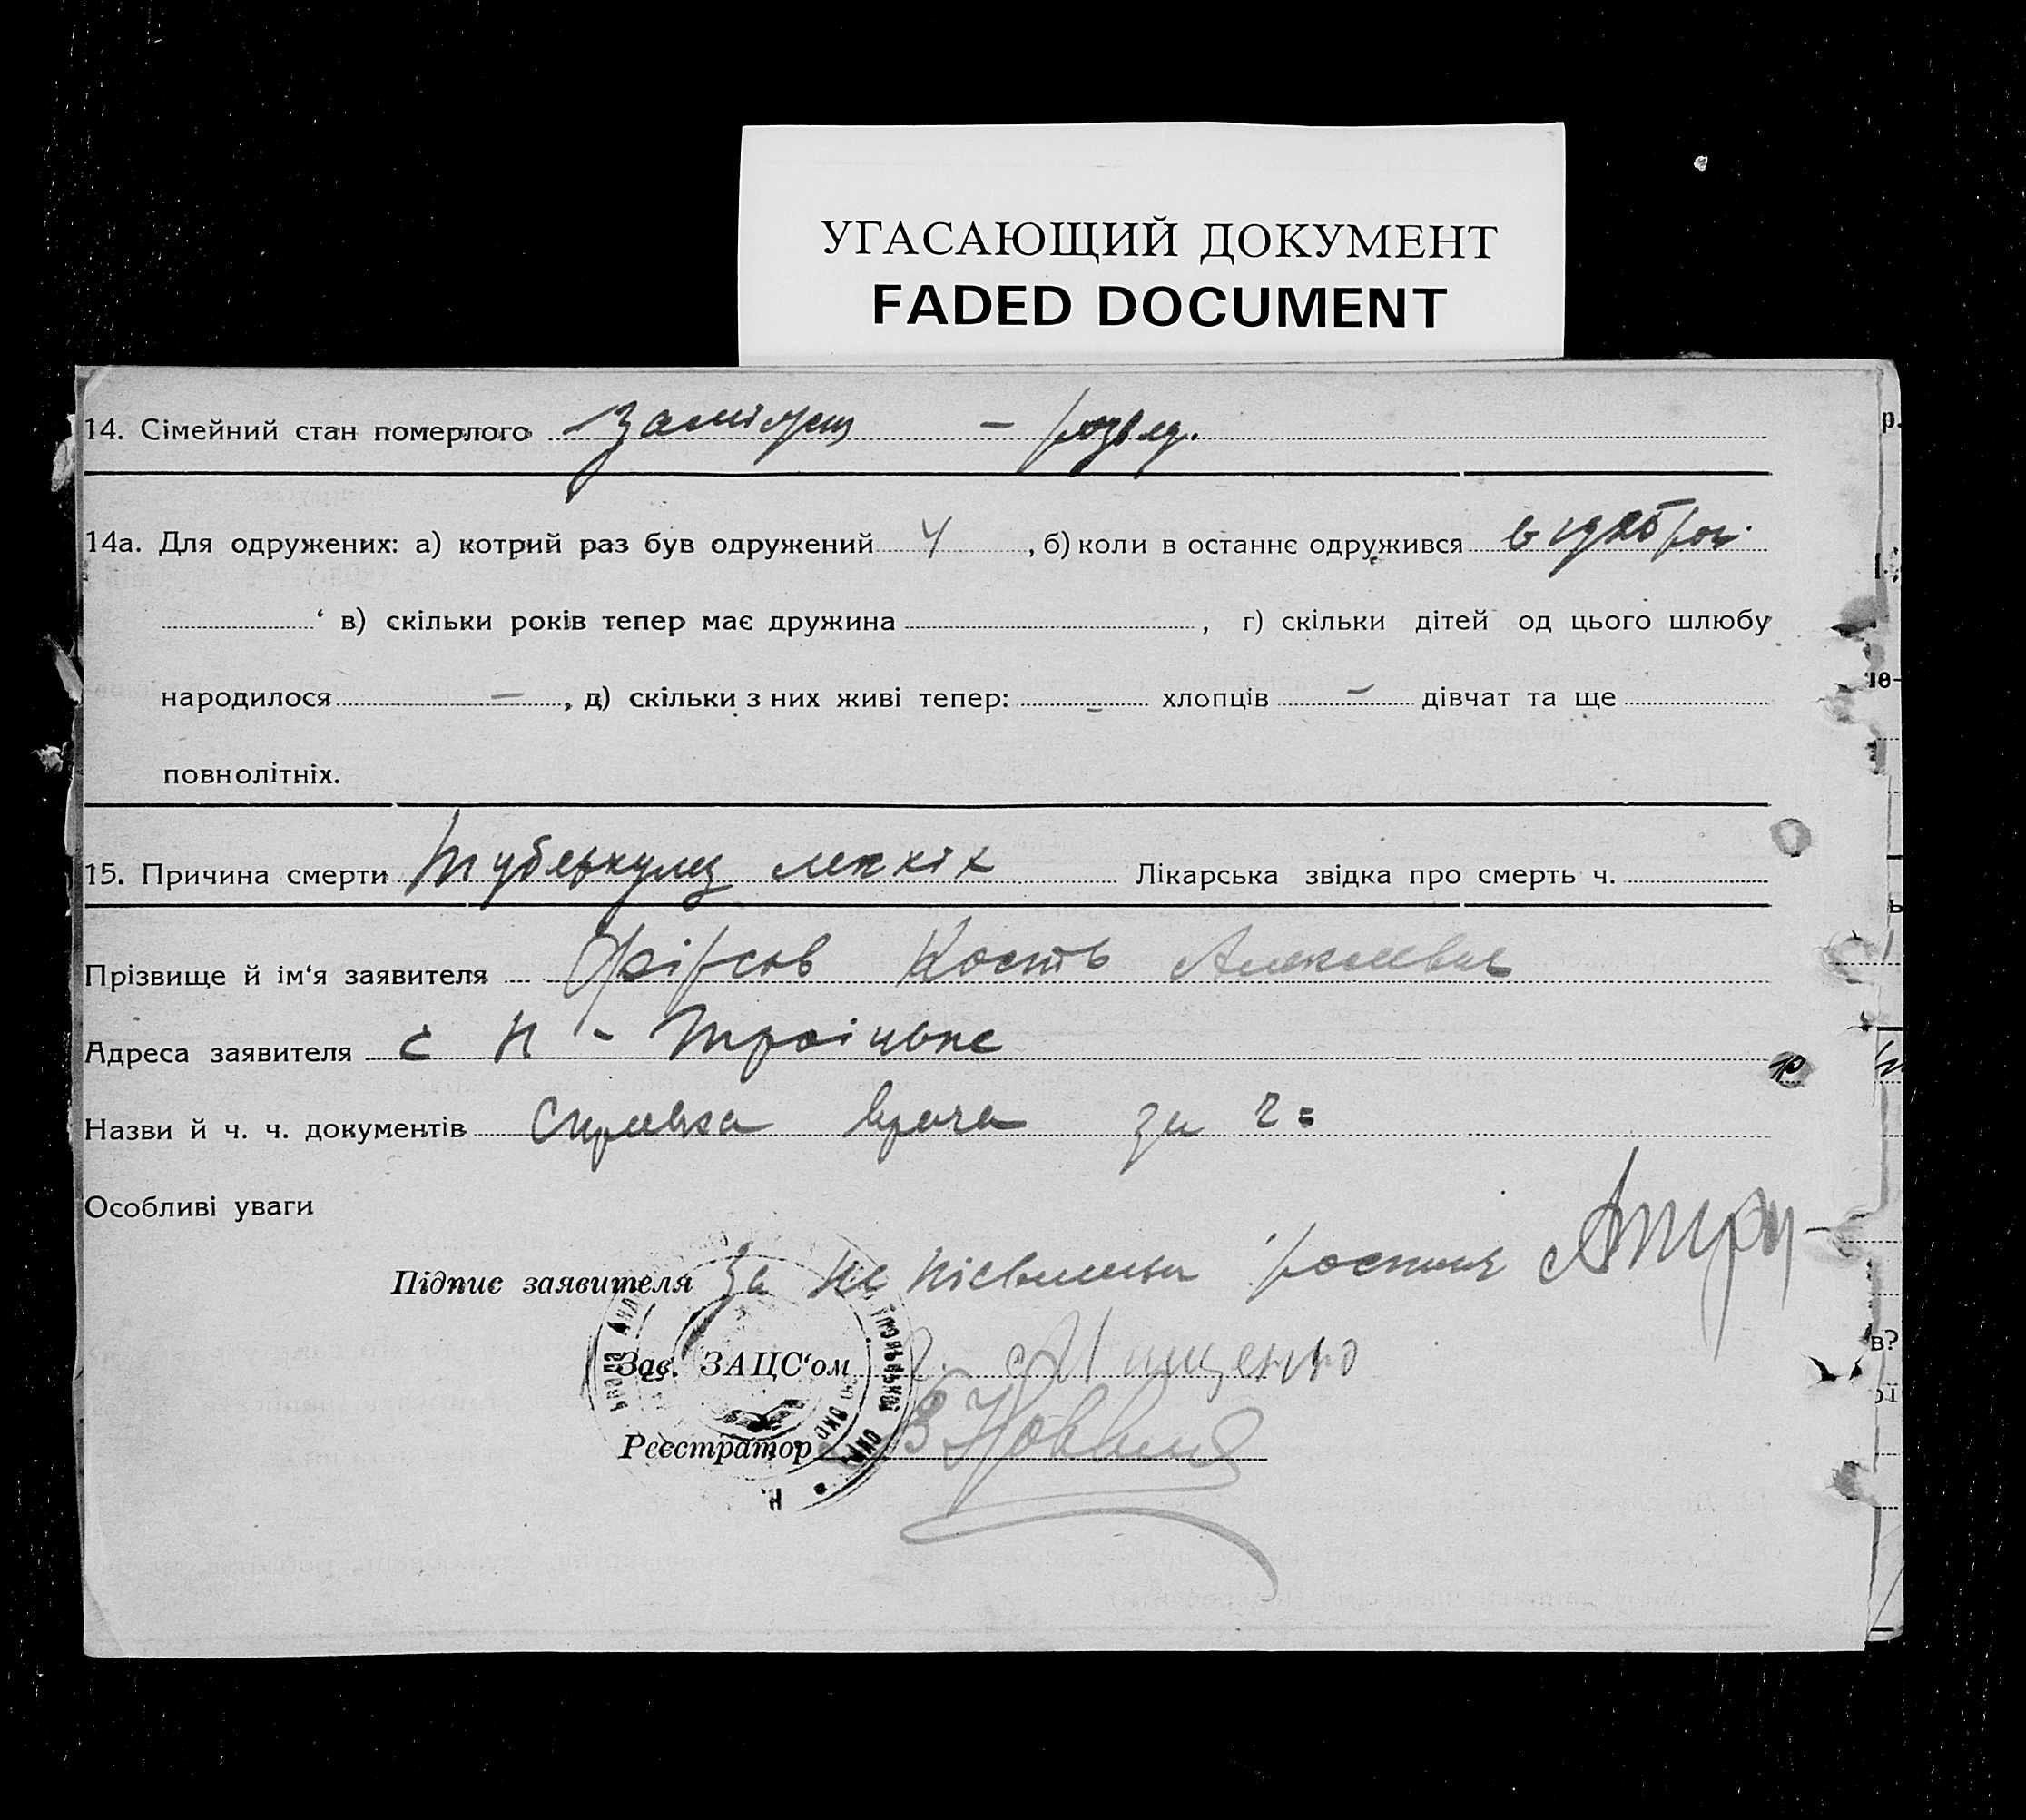 УГАСАЮЩИЙ ДОКУМЕНТ
FADED DOCUMENT
14. Сімейний стан померлого заміжня – розвед.
14а. Для одружених: а) котрий раз був одружений 4, б) коли в останнє одружився в 1925 році
в) скільки років тепер має дружина , г) скільки дітей од цього шлюбу
народилося – , д) скільки з них живі тепер: – хлопців – дівчат та ще
повнолітніх.
15. Причина смерти туберкулез легких Лікарська звідка про смерть ч.
Прізвище й ім‘я заявителя Фірсов Кость
Адреса заявителя с Н - Троіцьке
Назви й ч. ч. документів Справка врача за
Особливі уваги
Підпис заявителя За не
Зав. ЗАЦС‘ом Міщенко
Реєстратор